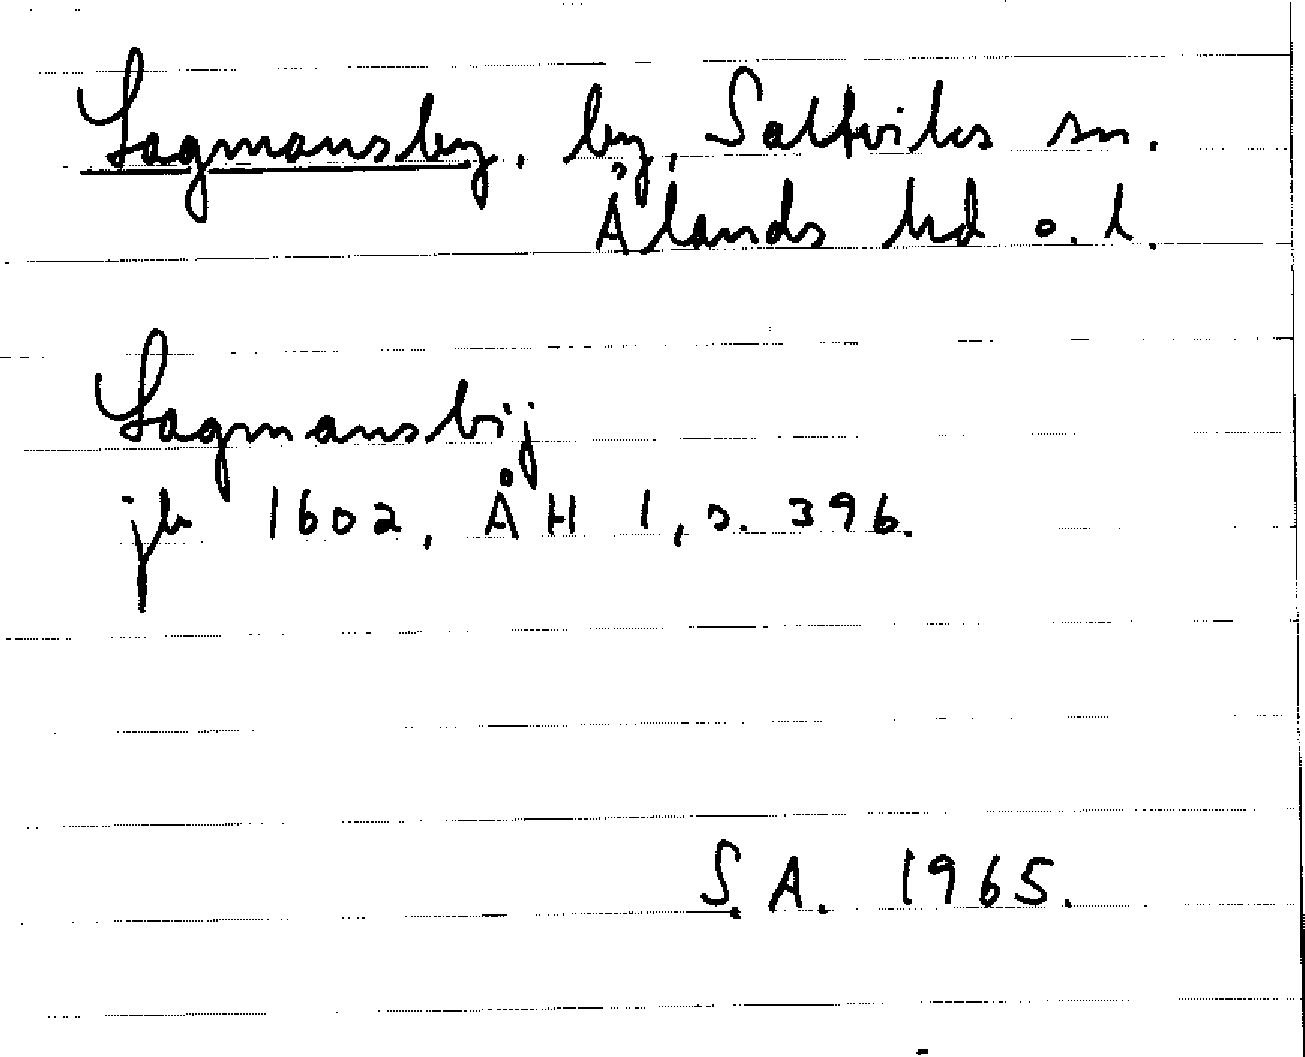 Lagmansby, by, Saltviks sn.
Ålands hd o. l.
Lagmansbij
jb 1602, ÅH 1, s. 396.
S.A. 1965.